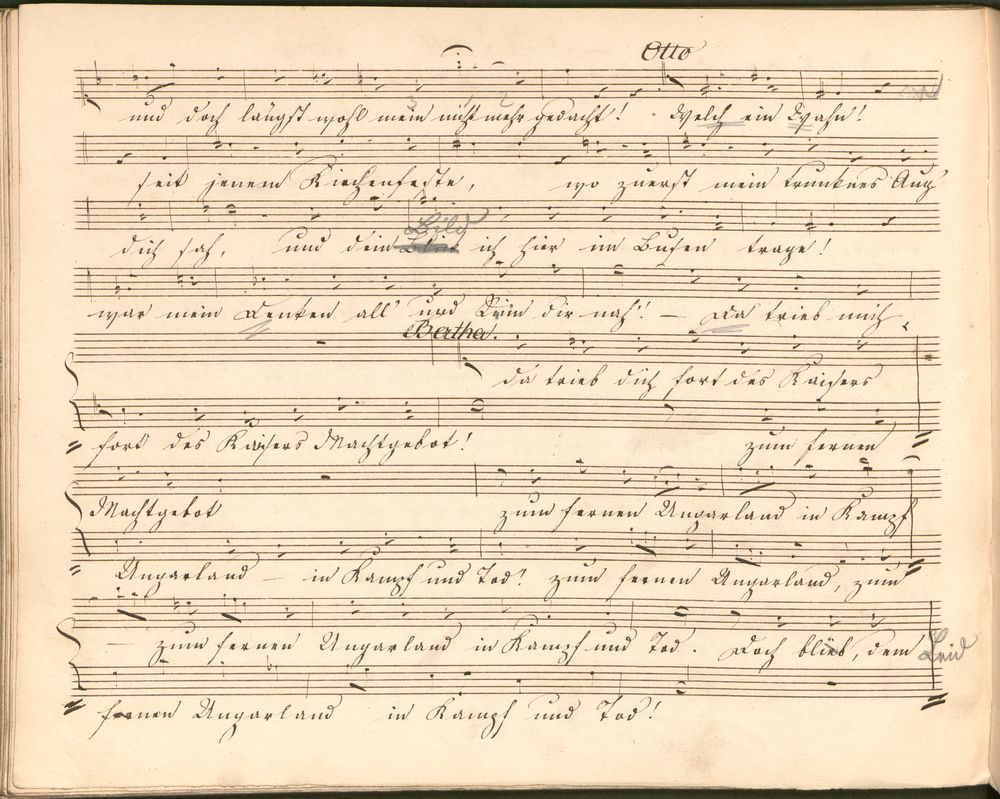 Otto
und doch längst wohl mein nicht mehr gedacht! Welch ein Wahn!
3 1 2
seit jenem Kirchenfeste, wo zuerst mein trunknes Aug'
Bild
dich sah, und dein ich hier im Busen trage!
war mein Denken all' und Sein dir nah'! — Da trieb mich
Bertha.
da trieb dich fort des Kaisers
fort des Kaisers Machtgebot! zum fernen
Machtgebot zum fernen Ungarland in Kampf
Ungarland — in Kampf und Tod! zum fernen Ungarland, zum
— zum fernen Ungarland in Kampf und Tod. Doch blieb, dem Leid
fernen Ungarland in Kampf und Tod!